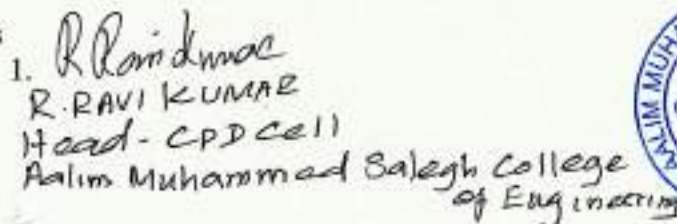 1. R Ravi Kumar
R. RAVI KUMAR
Head - CPD Cell
Aalim Muhammed Salegh College
of Engineering
AALIM MUHA